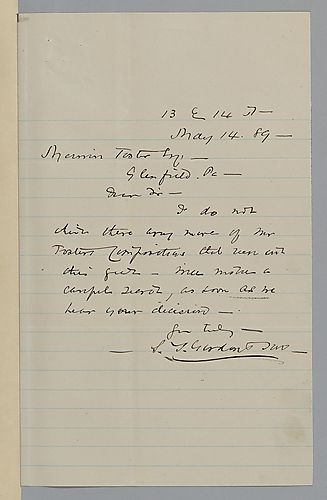 13 E 14 St —
May 14. 89 —
Morrison Foster Esq. —
Glenfield. Pa —
Dear Sir —
I do not
think there any more of Mr
Fosters Compositions that
this Will make a
careful search, as soon as we
hear your decision —
Yrs truly —
— S. T. Gordon & Son —